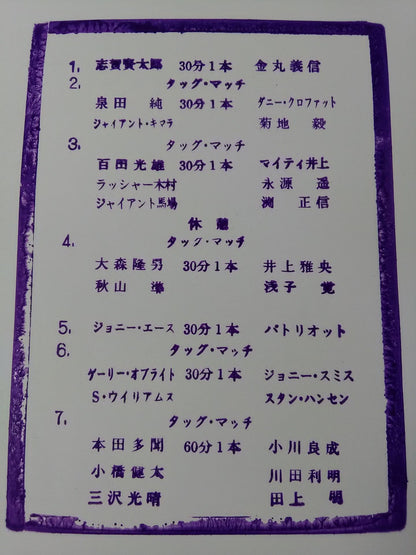 1. 志賀賢太郎 30分1本 金丸義信
2. タッグ・マッチ
泉田 純 30分1本 ダニー・クロファット
ジャイアント・キマラ 菊地 毅
3. タッグ・マッチ
百田光雄 30分1本 マイティ井上
ラッシャー木村 永源 遥
ジャイアント馬場 渕 正信
休憩
4. タッグ・マッチ
大森隆男 30分1本 井上雅央
秋山 準 浅子 覚
5. ジョニー・エース 30分1本 パトリオット
6. タッグ・マッチ
ゲーリー・オブライト 30分1本 ジョニー・スミス
S・ウイリアムス スタン・ハンセン
7. タッグ・マッチ
本田多聞 60分1本 小川良成
小橋健太 川田利明
三沢光晴 田上 明